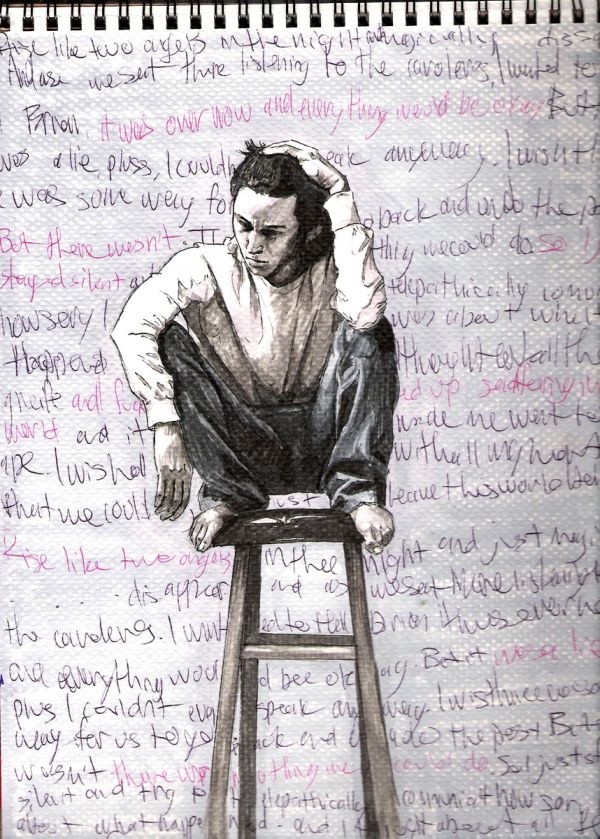 Rise like two angels in the night and magically dissa
And as we sat there listening to the carolers, I wanted to
Brian it was over now and everything would be okay. But,
was a lie, pluss, I couldn eak anyway. I wish th
e was some way fo o back and undo the pa
But there wasn't. T thing we could do so I j
stayed silent a telepathically comm
how sorry I was about what
happened thought of all the
grief and fu ed up suffering in
world and it made me want to
ape. I wished with all my heart
that we could ust leave this world behi
Rise like two angels in the night and just magi
disappear and as we sat there listening t
the carolers. I wanted to tell Brian it was over no
and everything would bee okay. But it was a lie
plus I couldn't even speak anyway. I wish there was so
way for us to go back and undo the past But
wasn't there was nothing me could do. So I just st
silent and try telepathically communicat how sorry
about what happened - and I thought about all